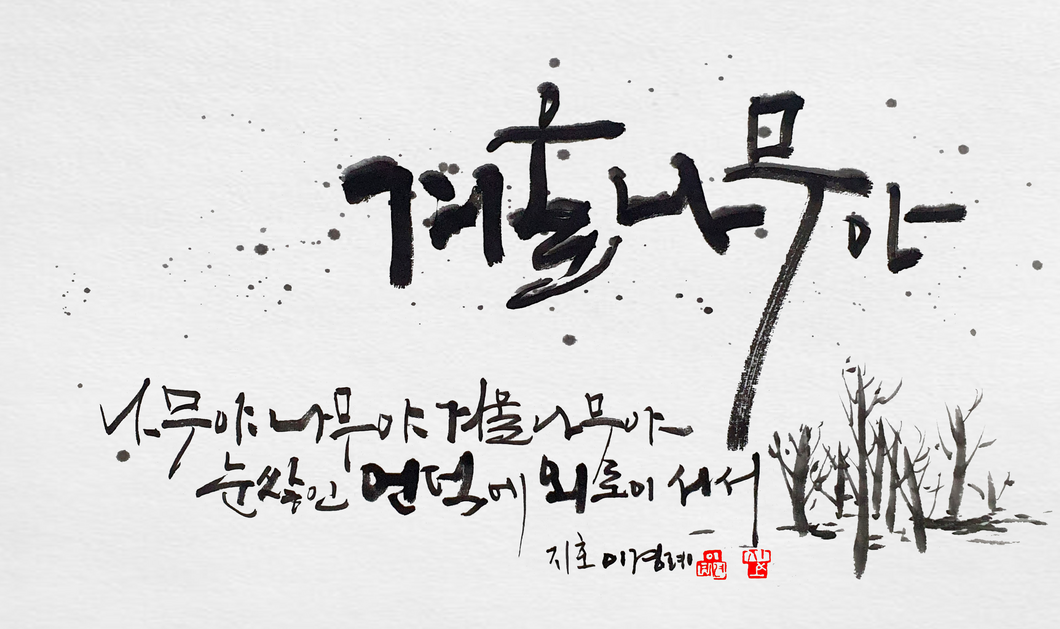 겨울나무야
나무야 나무야 겨울나무야
눈쌓인 언덕에 외로이 서서
지호 이경례